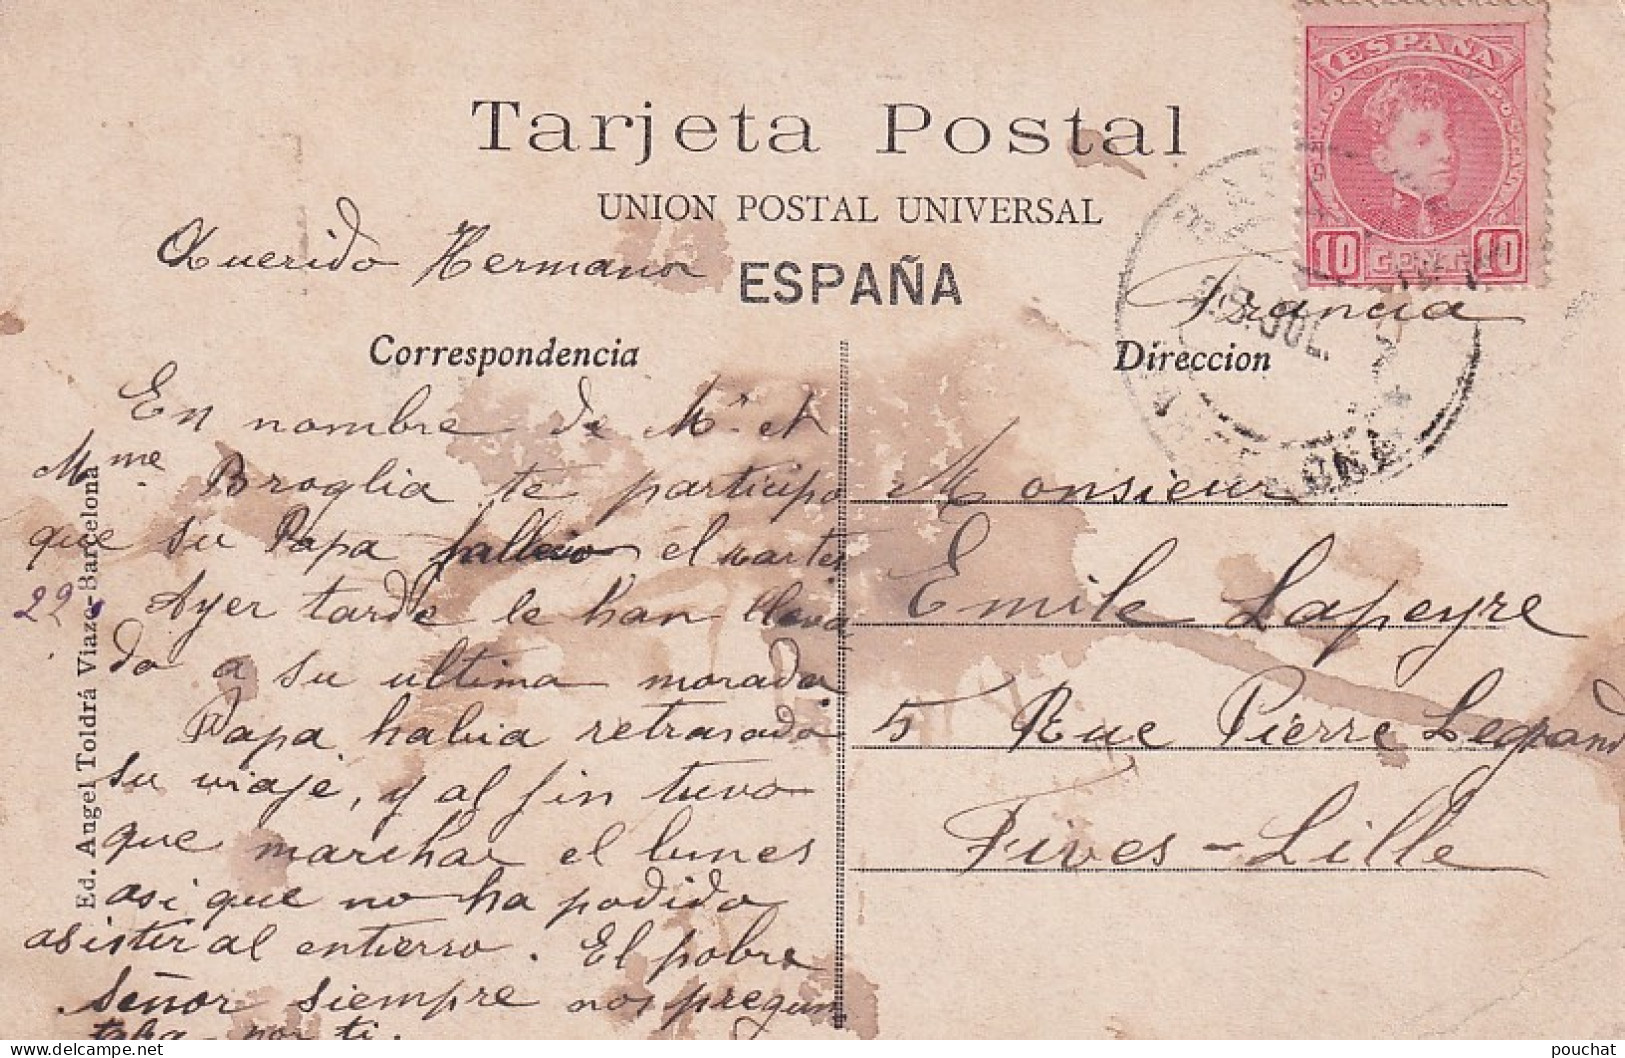 Tarjeta Postal
UNION POSTAL UNIVERSAL
ESPAÑA
ESPAÑA
10 CENT. 10
Querido Hermano
Correspondencia
En nombre de Mr et
Mme Broglia te participo
que su Papa fallecio el martes
22. Ayer tarde le han lleva
do a su ultima morada
Papa habia retrasado
su viaje, y al fin tuvo
que marchar el lunes
asi que no ha podido
asistir al entierro. El pobre
señor siempre nos pregun
taba por ti.
Ed. Angel Toldrá Viazo-Barcelona
Francia
JUL.
Direccion
Monsieur
Emile Lapeyre
5 Rue Pierre Legrand
Fives-Lille
pouchat